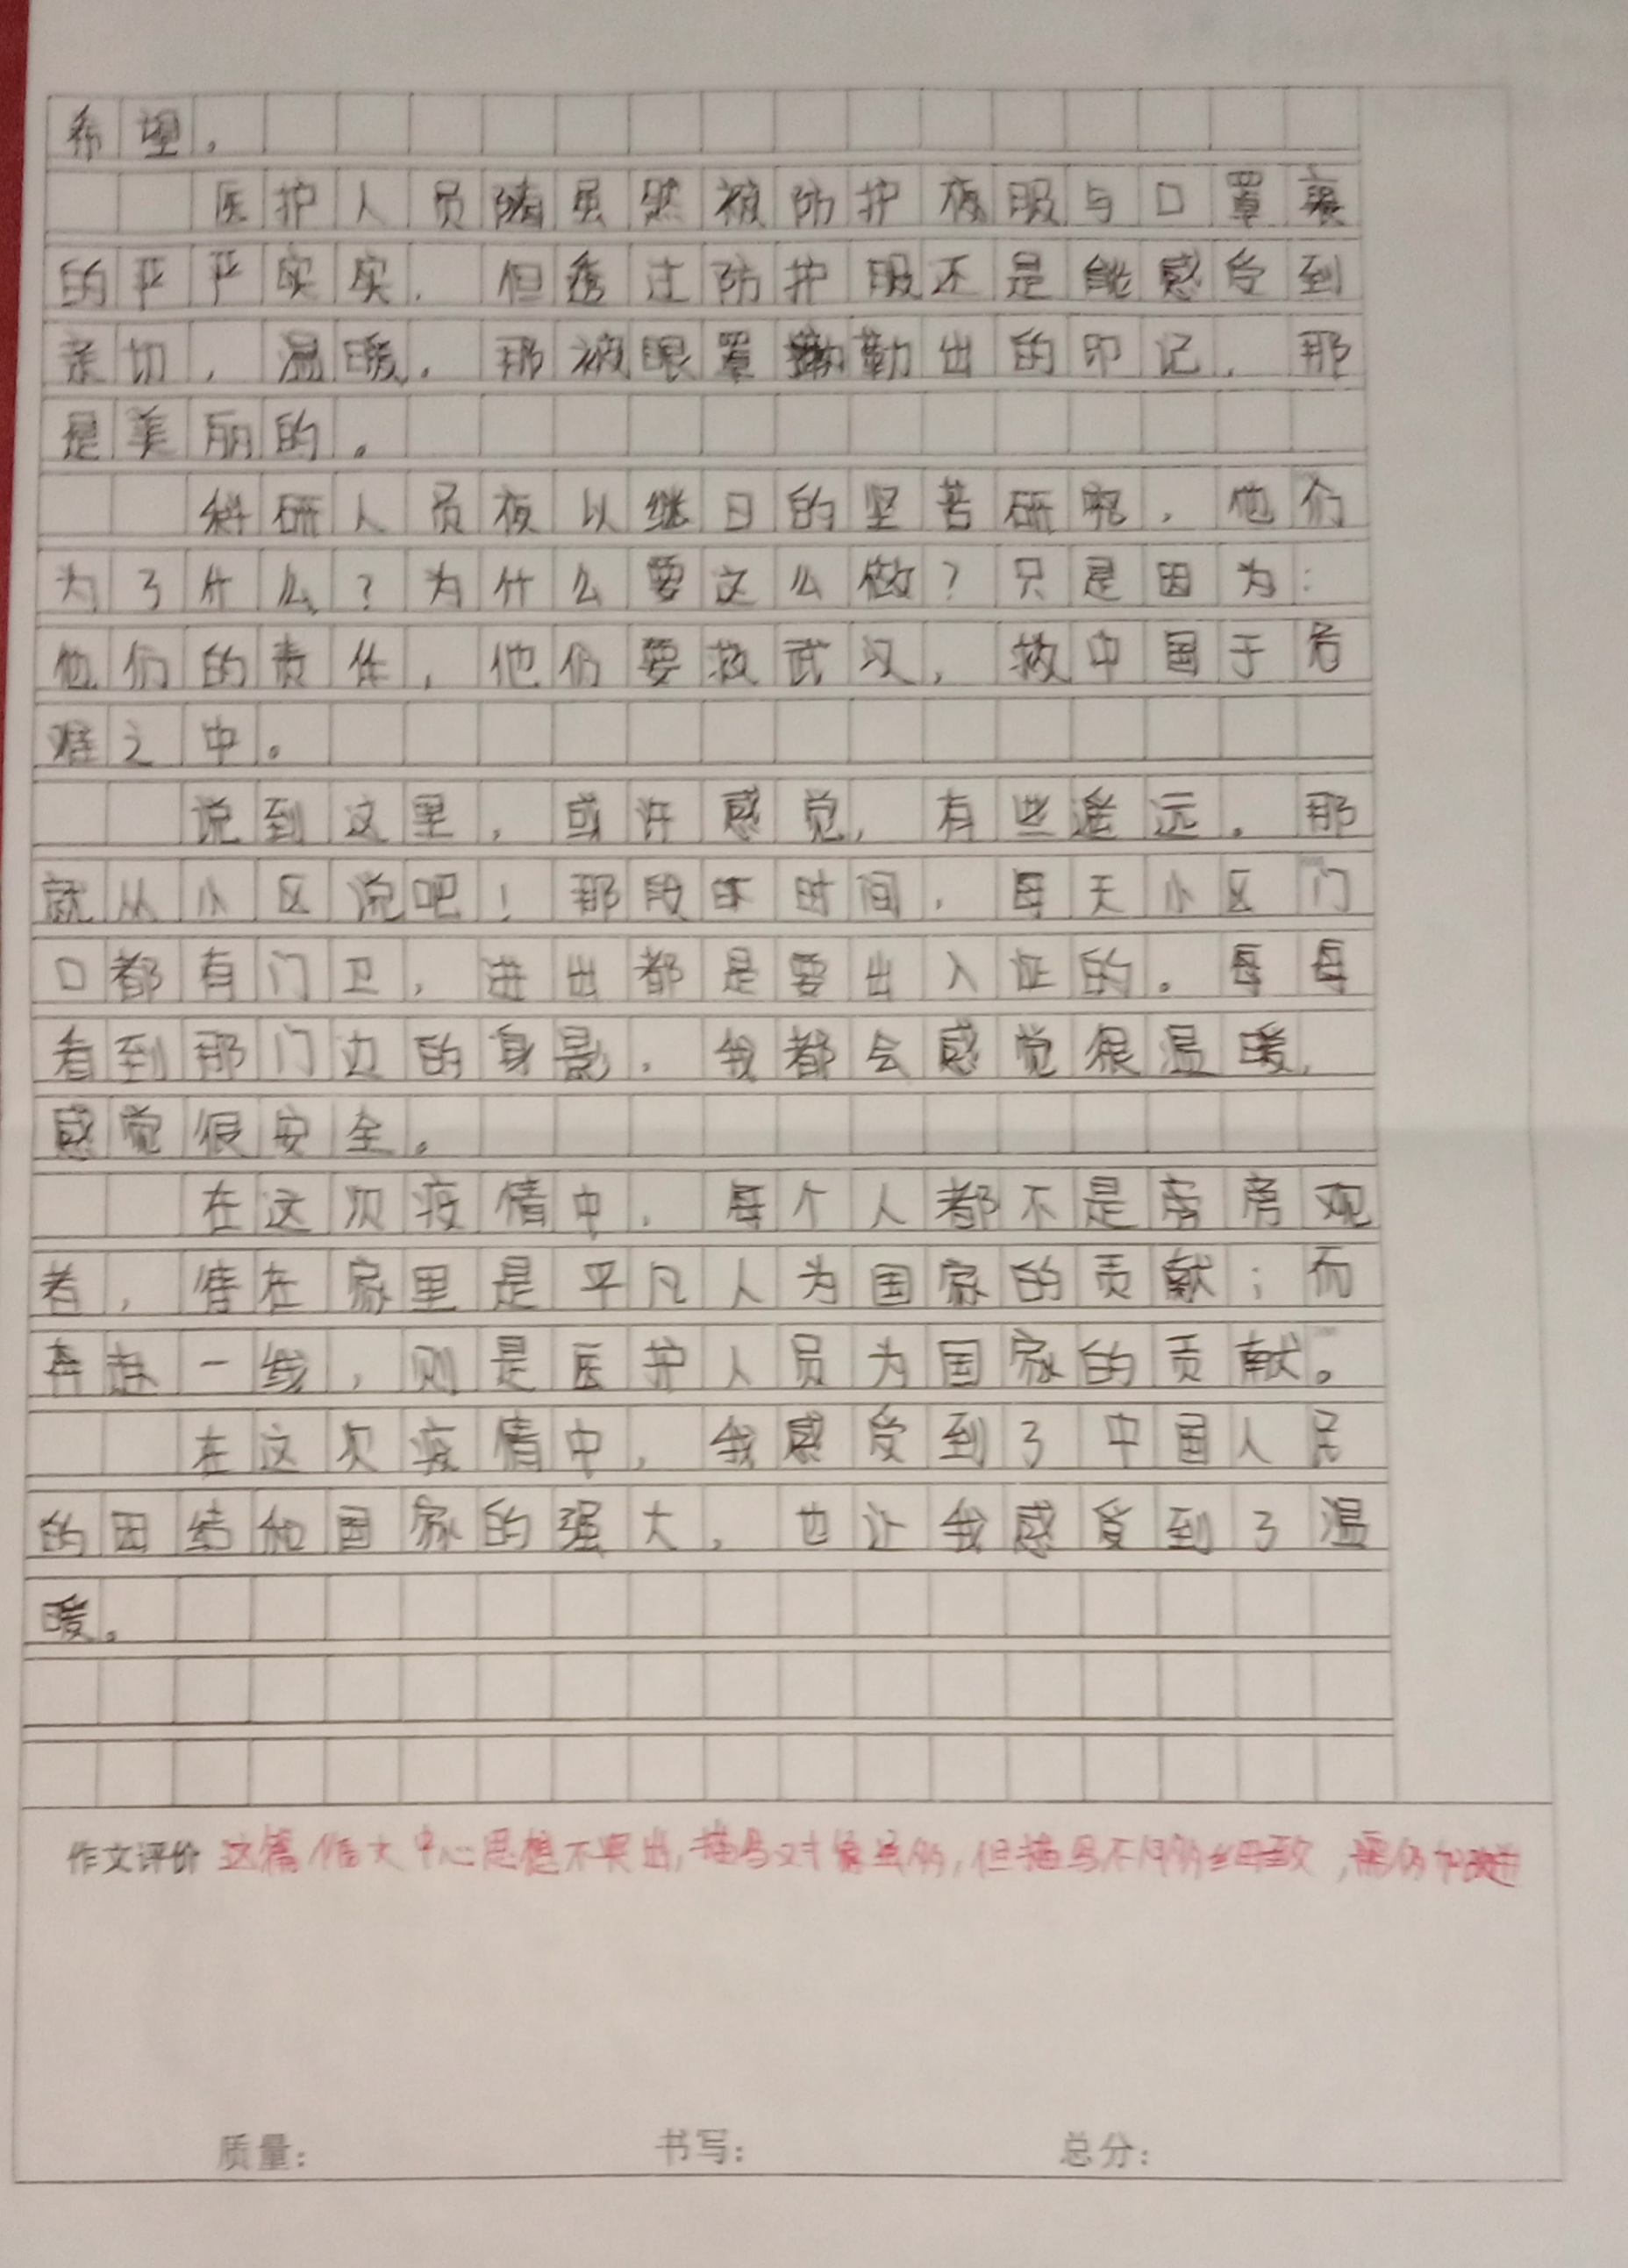 希望。
医护人员虽然被防护服与口罩裹
的严严实实，但透过防护服还是能感受到
亲切，温暖，那被眼罩勒出的印记，那
是美丽的。
科研人员夜以继日的坚苦研究，他们
为了什么？为什么要这么做？只是因为：
他们的责任，他们要救武汉，救中国于危
难之中。
说到这里，或许感觉，有些遥远。那
就从小区说吧！那段时间，每天小区门
口都有门卫，进出都是要出入证的。每每
看到那门边的身影，我都会感觉很温暖，
感觉很安全。
在这次疫情中，每个人都不是旁观
者，待在家里是平凡人为国家的贡献；而
奔赴一线，则是医护人员为国家的贡献。
在这次疫情中，我感受到了中国人民
的团结和国家的强大，也让我感受到了温
暖。
作文评价 这篇作文中心思想不突出，描写对象，但描写不细致，需改进
质量： 书写： 总分：